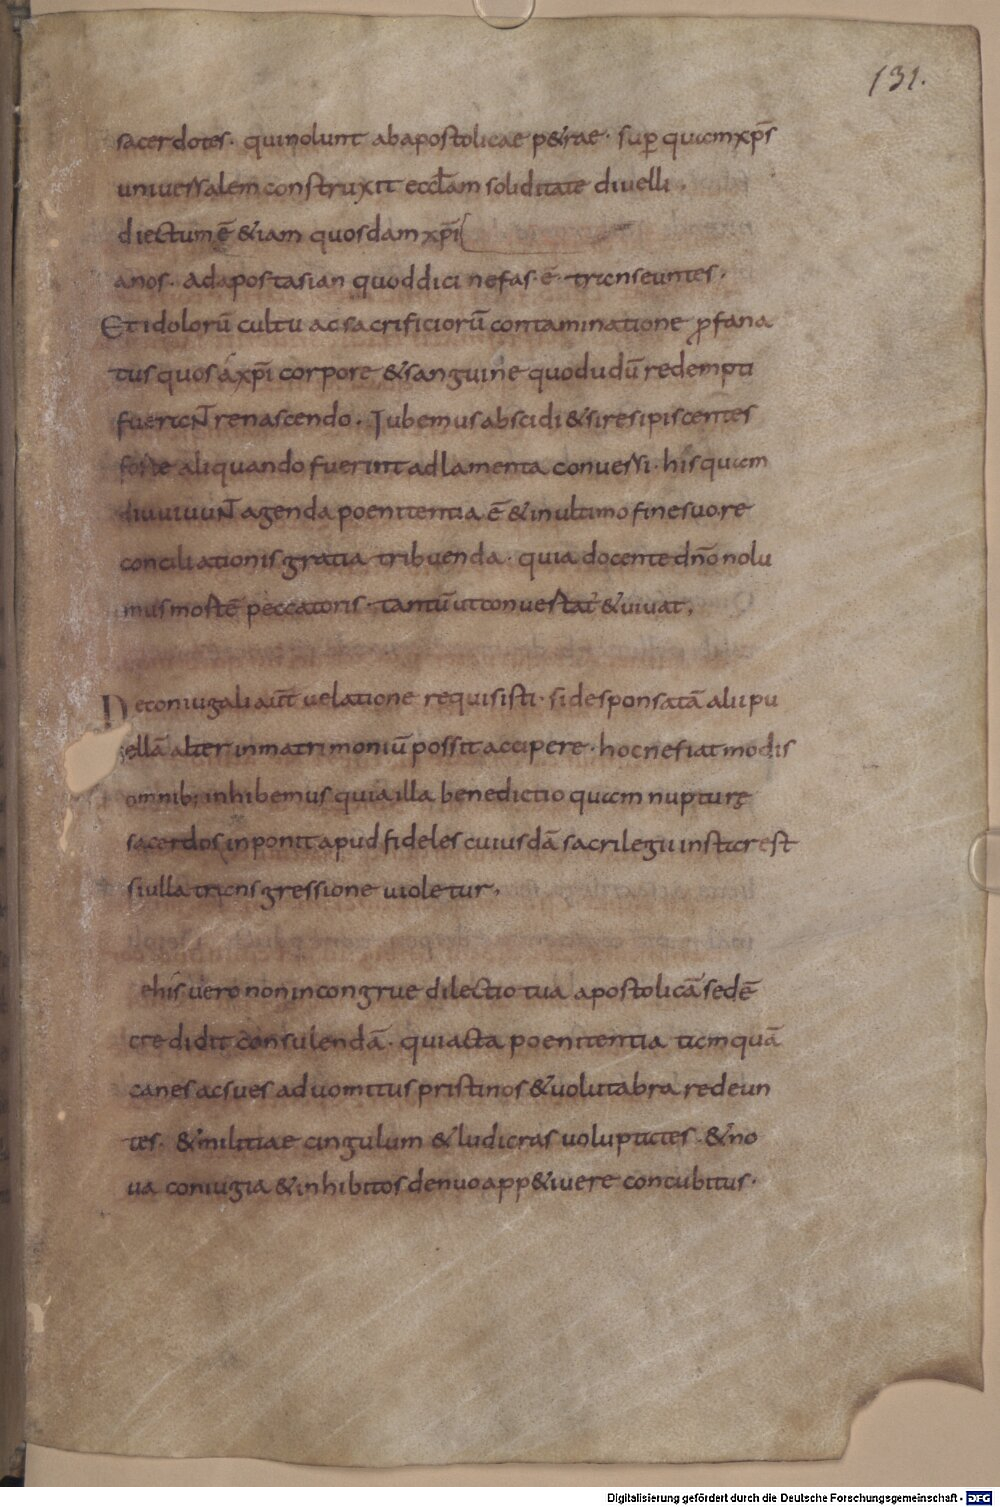 131.
sacerdotes· quinolunt abapostolicae p&rae· sup̄ quam xp̄s
universalem construxit eccl̄am soliditate divelli·
diectum ē &iam quosdam xp̄i
anos· adapostasian quoddici nefas· ē· transeuntes·
Et idolorū cultu acsacrificiorū contaminatione ꝓfana
tus quos a xp̄i corpore &sanguine quodudū redempti
fueraN̄ renascendo· Iubemus abscidi &siresipiscentes
forte aliquando fuerint adlamenta conversi· his quam
diuvivuN̄ agenda poenitentia ē &inultimo finesuo re
conciliationis gratia tribuenda· quia docente dn̄o nolu
mus mortē peccatoris· tantū utconvertat̄ &vivat·
Deconiugali aūt velatione requisisti· si desponsatā alii pu
ellā alter inmatrimoniū possit accipere· hoc nefiat modis
omnib; inhibemus quia illa benedictio quam nupturę
sacerdos inponit apud fideles cuiusdā sacrilegii instar est
siulla transgressione violetur·
ehis vero non incongrue dilectio tua apostolicā sedē
credidit consulendā· quiacta poenitentia tamquā
canes acsues advomitus pristinos &volutabra redeun
tes· &militiae cingulum &ludicras voluptates· &no
va coniugia &inhibitos denuo app&ivere concubitus·
Digitalisierung gefördert durch die Deutsche Forschungsgemeinschaft - DFG